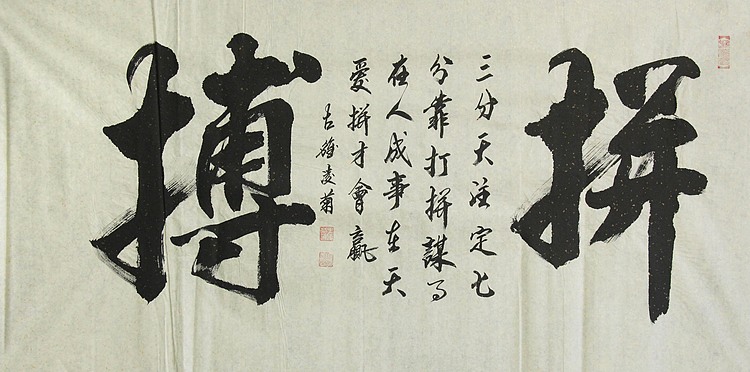 拼
三分天注定七
分靠打拼謀事
在人成事在天
愛拼才會贏
搏